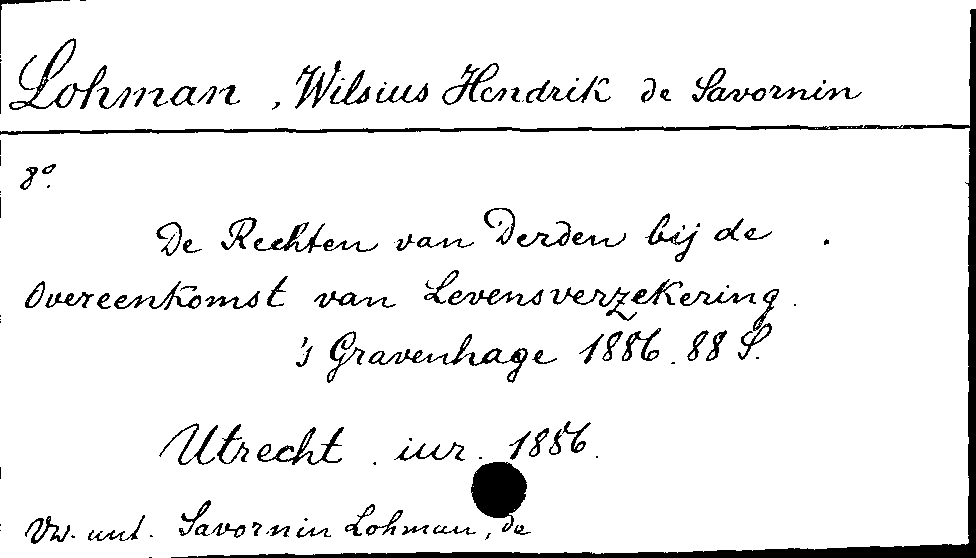 Lohman, Wilsius Hendrik de Savornin
8°.
De Rechten van Derden bij de
Overeenkomst van Levensverzekering.
's Gravenhage 1886. 88 S.
Utrecht. iur. 1886.
Vw. unt. Savornin Lohman, de